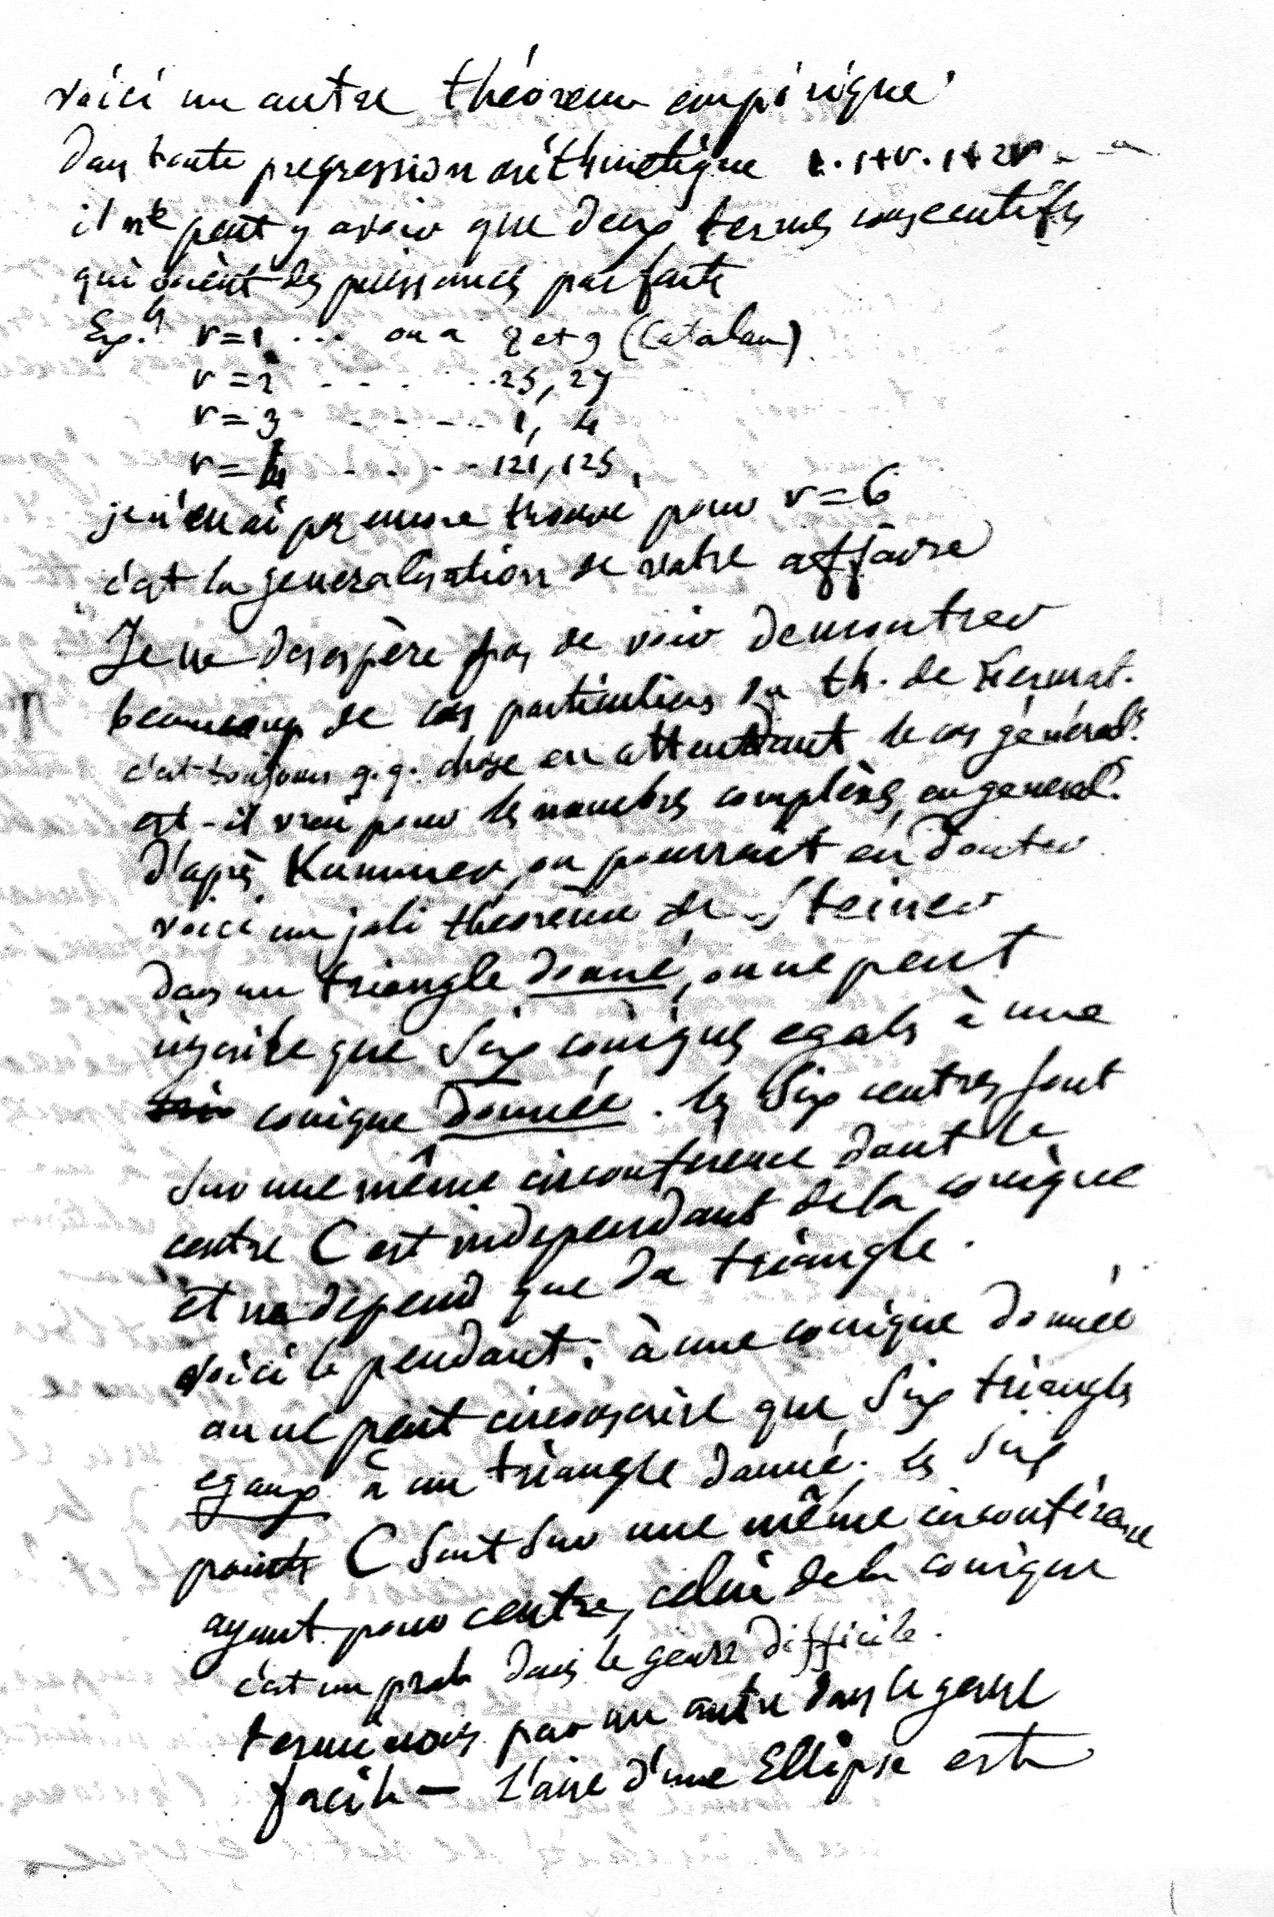 voici un autre théoreme empirique
Dans toute progression arithmetique 1. 1+r. 1+2r - - -
il ne peut y avoir que deux termes consecutifs
qui soient des puissances parfaits
Exp. r=1 ... on a 8 et 9 (Catalan)
r=2 . . . . . . 25, 27
r=3 . . . . . . 1, 4
r=4 . . . . . 121, 125
je n'en ai pas encore trouvé pour r=6
c'est la generalisation de votre affaire
Je ne desespère pas de voir demontrer
beaucoup de cas particuliers du th. de Fermat.
c'est toujours q.q. chose en attendant le cas général.
est-il vrai pour les nombres complexes, en general?
d'après Kummer, on pourrait en douter
voici un joli théorème de Steiner
Dans un triangle donné, on ne peut
inscrire que six coniques egales à une
conique donnée. les six centres sont
sur une même circonference dont le
centre C est independant de la conique
et ne depend que du triangle.
voici le pendant : à une conique donnée
on ne peut circonscrire que six triangles
egaux à un triangle donné. les six
points C sont sur une même circonférence
ayant pour centre, celui de la conique
c'est un prob dans le genre difficile.
terminons par un autre dans le genre
facile — L'aire d'une Ellipse est